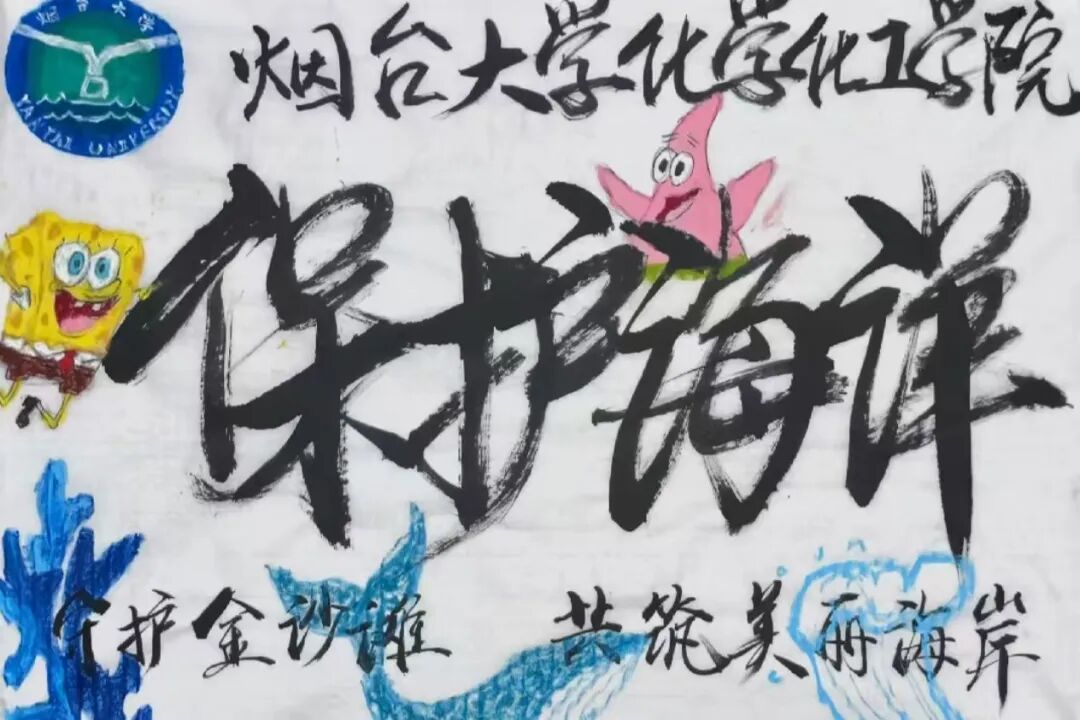 烟台大学
YANTAI UNIVERSITY
烟台大学化学化工学院
保护海洋
守护金沙滩 共筑美丽海岸